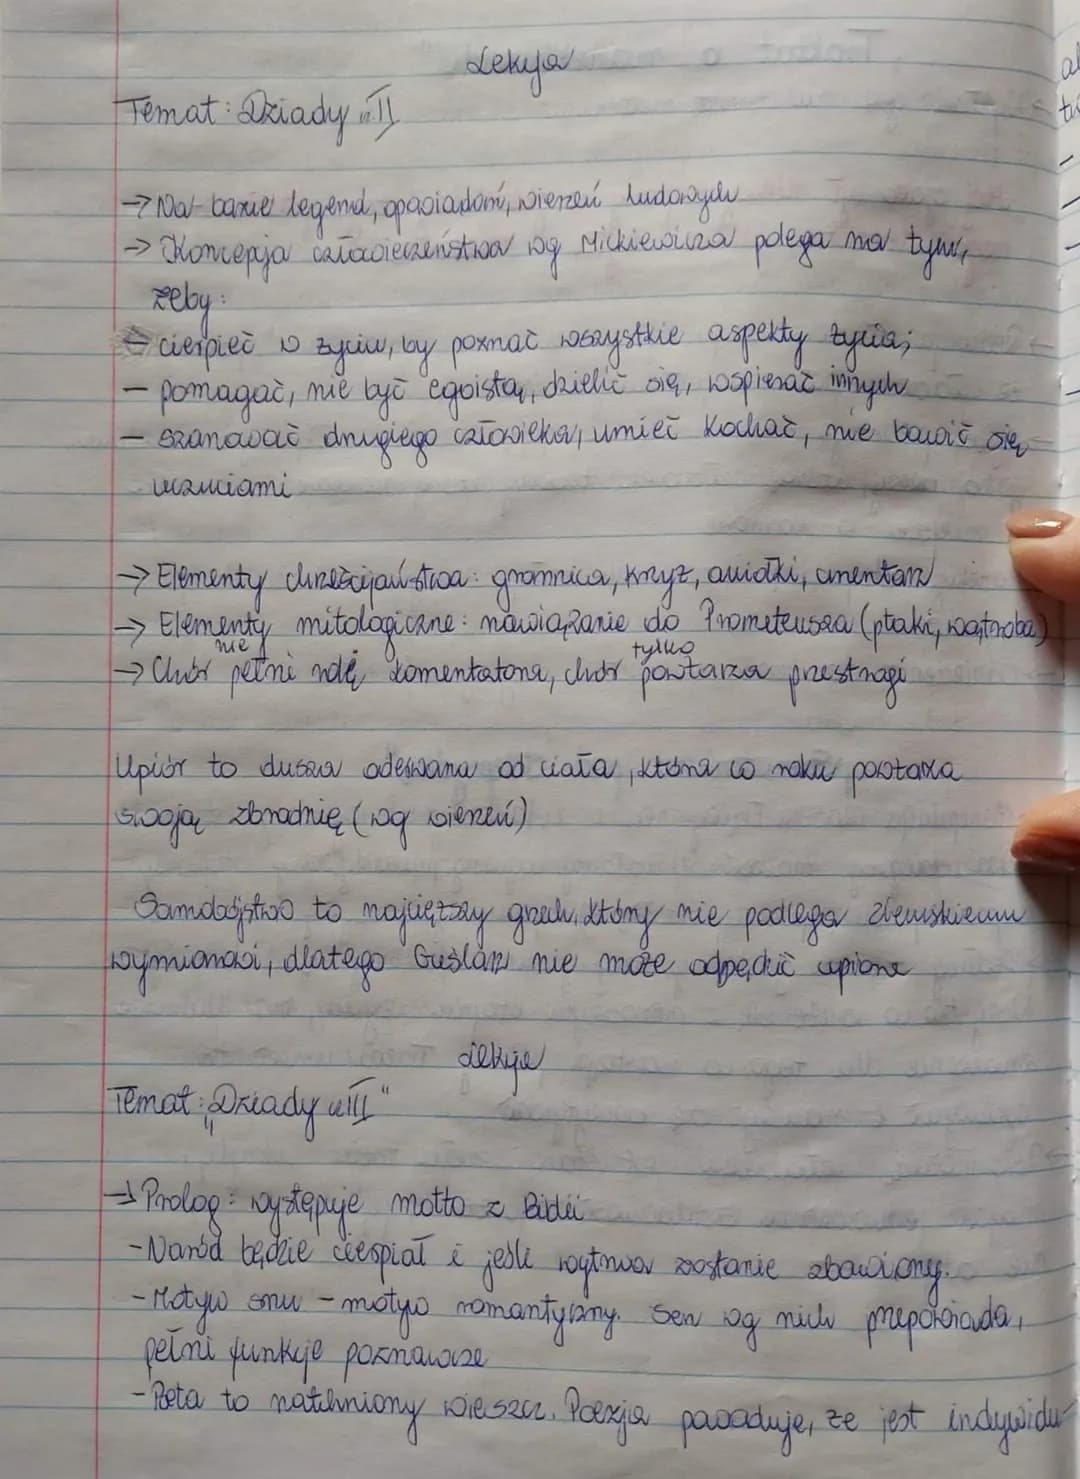 Lekcja
Temat: Dziady cz. II
→ Na bazie legend, opowiadań, wierzeń ludowych
→ Koncepcja człowieczeństwa wg Mickiewicza polega na tym,
żeby:
- cierpieć w życiu, by poznać wszystkie aspekty życia;
- pomagać, nie być egoistą, dzielić się, wspierać innych
- szanować drugiego człowieka, umieć kochać, nie bawić się
uczuciami
→ Elementy chrześcijaństwa: gromnica, krzyż, aniołki, cmentarz
→ Elementy mitologiczne: nawiązanie do Prometeusza (ptaki, wątroba)
→ Chór nie pełni rolę komentatora, chór tylko powtarza przestrogi
Upiór to dusza oderwana od ciała, która co roku powtarza
swoją zbrodnię (wg wierzeń)
Samobójstwo to najcięższy grzech, który nie podlega ziemskiemu
wymiarowi, dlatego Guślarz nie może odpędzić upiora
Lekcja
Temat: „Dziady cz III"
→ Prolog: występuje motto z Biblii
- Naród będzie cierpiał i jeśli wytrwa zostanie zbawiony.
- Motyw snu - motyw romantyczny. Sen wg nich przepowiada,
pełni funkcje poznawcze
- Poeta to natchniony wieszcz. Poezja powoduje, że jest indywidu